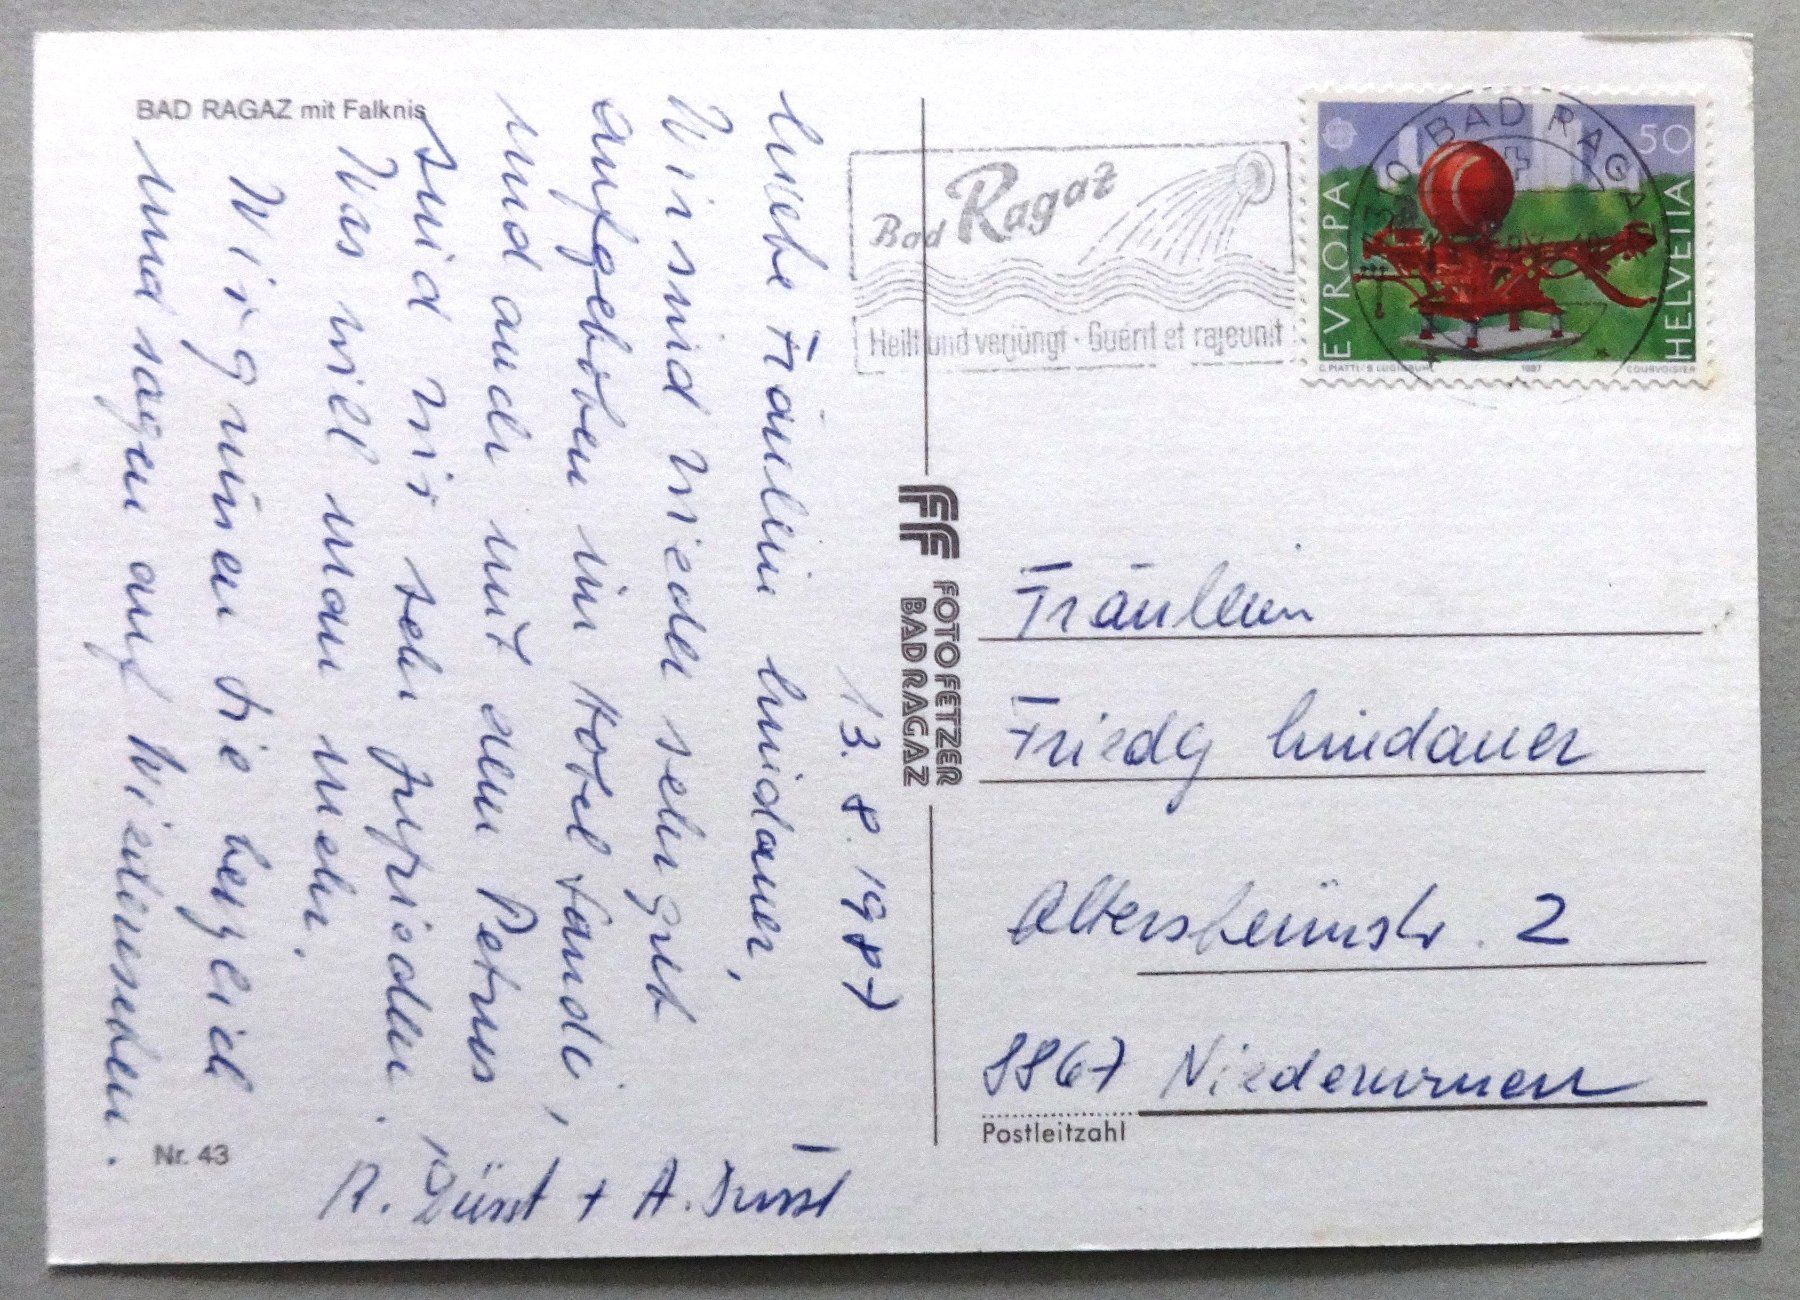 BAD RAGAZ mit Falknis
13. 8. 1987
Liebe Fräulein Lindauer,
Wir sind wieder sehr gut
aufgehoben im Hotel Tandi,
und auch mit dem Petrus
sind wir sehr zufrieden.
Was will man mehr.
Wir grüssen Sie herzlich
und sagen auf Wiedersehen.
R. Dürst + A.
Nr. 43
FF
FOTO FETZER
BAD RAGAZ
Bad Ragaz
Heilt und verjüngt · Guérit et rajeunit
BAD RAGAZ
EVROPA
50
HELVETIA
1987
COURVOISIER
Fräulein
Friedg Lindauer
Altersheimstr. 2
8867 Niederurnen
Postleitzahl